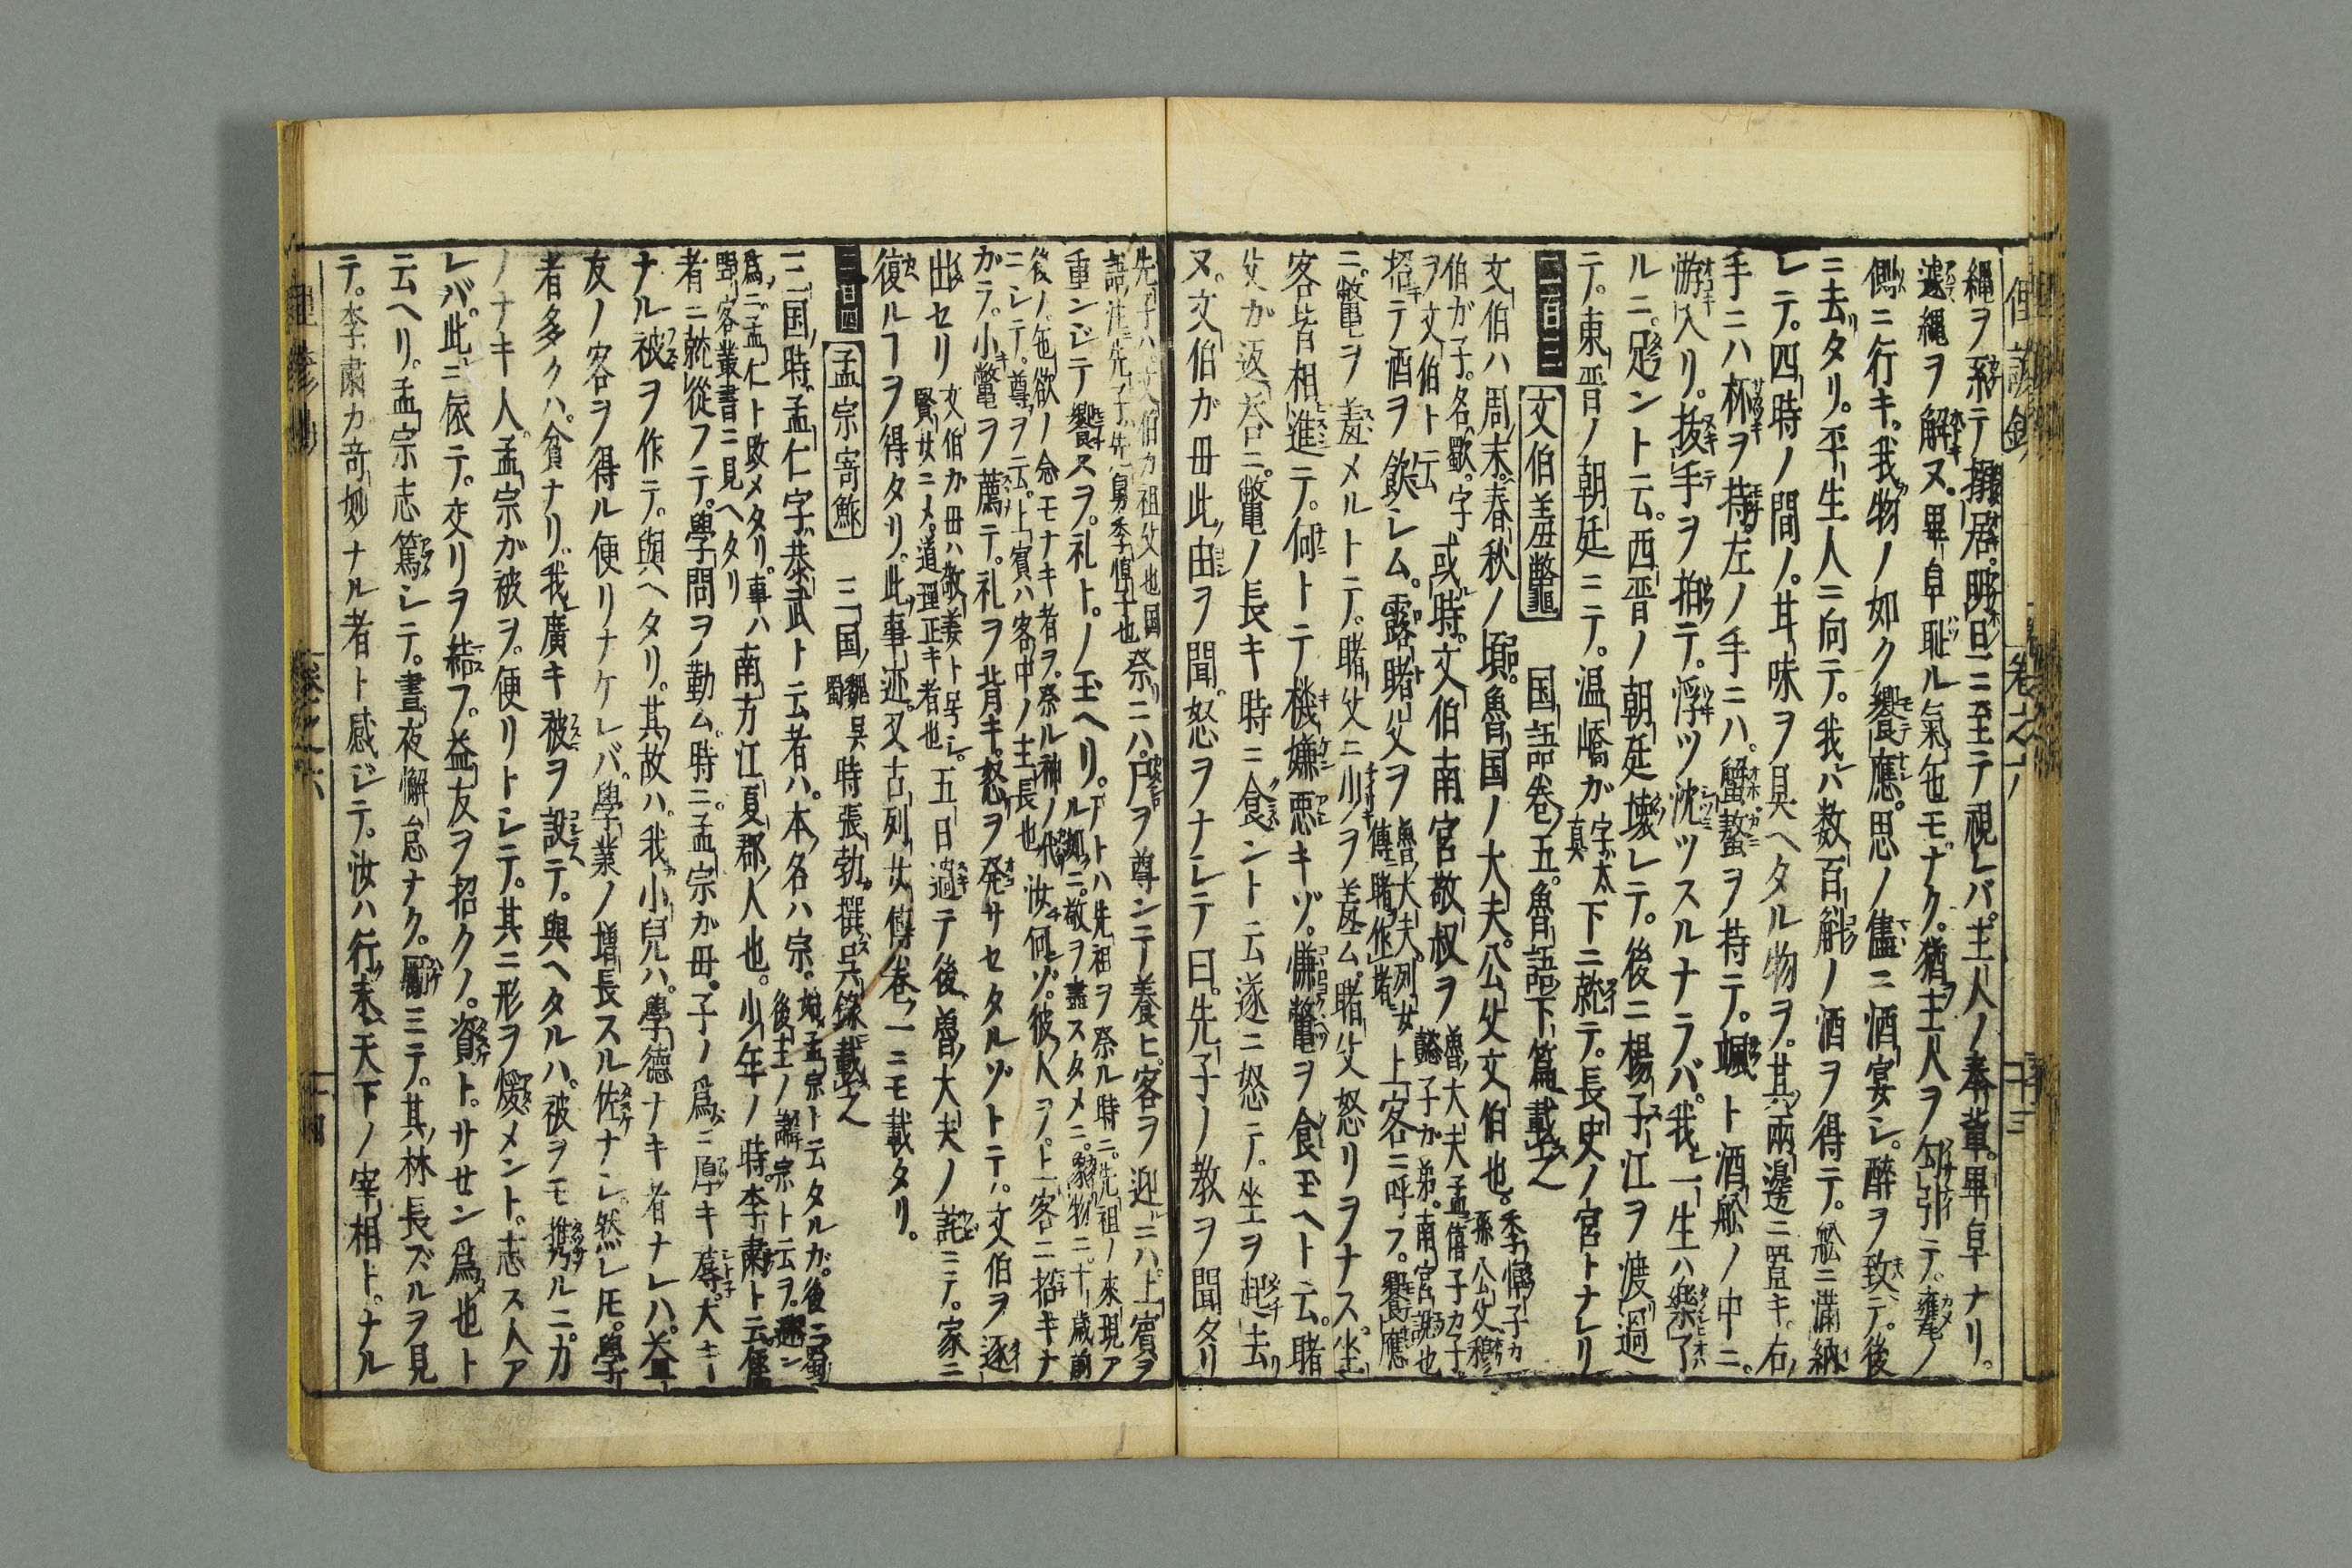 縄ヲ系テ撮居。明旦ニ至テ視レバ。主人ノ奉輩。畢卓ナリ。
遽縄ヲ解ヌ。畢卓恥ル氣色モナク。猶主人ヲ引テ。甕ノ
側ニ行キ。我物ノ如ク饗應。思ノ儘ニ酒宴シ。醉ヲ致テ。後
ニ去タリ。平生人ニ向テ。我ハ数百斛ノ酒ヲ得テ。舩ニ満納
レテ。四時ノ間ノ。其味ヲ具ヘタル物ヲ。其兩邊ニ置キ。右
手ニハ杯ヲ持。左ノ手ニハ。蟹螯ヲ持テ。颯ト酒舩ノ中ニ。
游入リ。抜手ヲ拍テ。浮ツ沈ツスルナラバ。我一生ハ樂了
ルニ。足ントニ云。西晋ノ朝廷壊レテ。後ニ楊子江ヲ渡過
テ。東晋ノ朝廷ニテ。温嶠ガ字太真下ニ就テ。長史ノ官トナレリ
二百三 文伯羞鼈 国語巻五。魯語下篇載之
文伯ハ周末。春秋ノ頃。魯国ノ大夫。公父文伯也。季悼子カ孫公父穆
伯ガ子。名歜。字ヲ文伯ト云 或時。文伯南宮敬叔ヲ 魯大夫孟僖子カ子懿子カ弟。南宮説也
招テ酒ヲ飲シム。露睹父ヲ 魯大夫。列女傳ニ睹作堵 上客ニ呼フ。饗應
ニ。鼈ヲ羞メルトテ。睹父ニ小ヲ羞ム。睹父怒リヲナス。坐
客皆相進テ。何トテ機嫌悪キゾ。慊鼈ヲ食玉ヘト云。睹
父カ返荅ニ。鼈ノ長キ時ニ食ントニ云遂ニ怒テ。坐ヲ起去
ヌ。文伯ガ母此由ヲ聞。怒ヲナシテ曰。先子ノ教ヲ聞タリ
先子ハ文伯カ祖父也国語注先子先舅季悼子也 祭ニハ。尸ヲ尊ンテ養ヒ。客ヲ迎ニハ。上賓ヲ
重ンジテ饗スヲ。礼ト。ノ玉ヘリ。尸トハ先祖ヲ祭ル時ニ。先祖ノ來現ア
ニシテ。尊ヲ云。上賓ハ客中ノ主長也 汝何ゾ。彼人ヲ。上客ニ招キナ
ガラ。小鼈ヲ薦テ。礼ヲ背キ。怒ヲ発サセタルゾトテ。文伯ヲ逐
出セリ 文伯カ母ハ敬姜ト号シ。賢女ニメ。道理正キ者也 五日過テ後。魯大夫ノ詫ニテ。家ニ
復ルヿヲ得タリ。此事迹。又古列女傳巻一ニモ載タリ。
二百四 孟宗寄鮓 三国 魏蜀呉 時張勃。撰呉録載之
三国時。孟仁字恭武ト云者ハ。本名ハ宗。始孟宗ト云タルガ。後ニ蜀後主ノ諱宗ト云ヲ。避ン
爲ニ。孟仁ト改メタリ。事ハ野客叢書ニ見ヘタリ 南方江夏郡人也。少年ノ時。李肅ト云儒
者ニ就從フテ。學問ヲ勤ム。時ニ。孟宗ガ母。子ノ爲ニ厚キ蓐。大キー
ナル被ヲ作テ。與ヘタリ。其故ハ。我小兒ハ。學德ナキ者ナレハ。益
友ノ客ヲ得ル便リナケレバ。學業ノ増長スル佐ナシ。然レ𪜈。學
者多クハ。貧ナリ。我廣キ被ヲ設テ。與ヘタルハ。被ヲモ携ルニカ
ノナキ人。孟宗ガ被ヲ。便リトシテ。其ニ形ヲ煖メント。志ス人ア
レバ。此ニ依テ。交リヲ結フ。益友ヲ招クノ。資ト。サセン爲也ト
云ヘリ。孟宗志篤シテ。晝夜懈怠ナク。勵ミテ。其林長ズルヲ見
テ。李肅カ竒妙ナル者ト感ジテ。汝ハ行末。天下ノ宰相ト。ナル